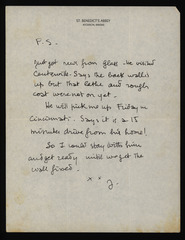 ST. BENEDICT'S ABBEY
ATCHISON, KANSAS
P.S.
Just got news from Glenn. He visited
Centerville. Says the back wall is
up but that lathe and rough
coat were not on yet.
He will pick me up Friday in
Cincinnati. Says it is a 15
minute drive from his home!
So I could stay with him
and get ready until we get the
wall fixed.
x x J.